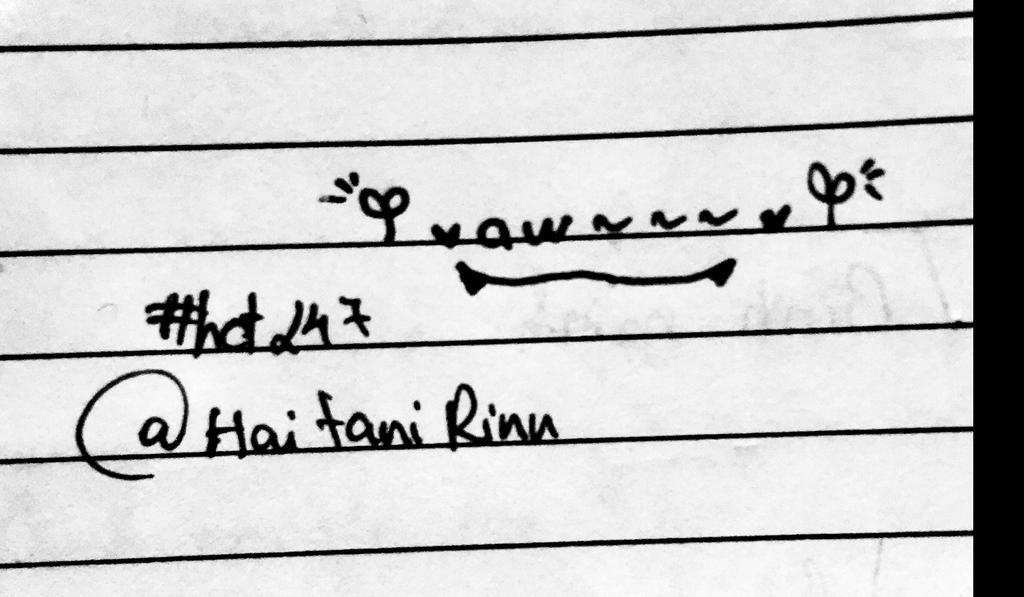 aw ~ ~ ~
#hot247
@Haitani Rinn